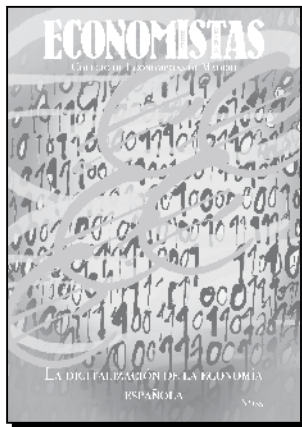 ECONOMISTAS
COLEGIO DE ECONOMISTAS DE MADRID
LA DIGITALIZACIÓN DE LA ECONOMÍA
ESPAÑOLA